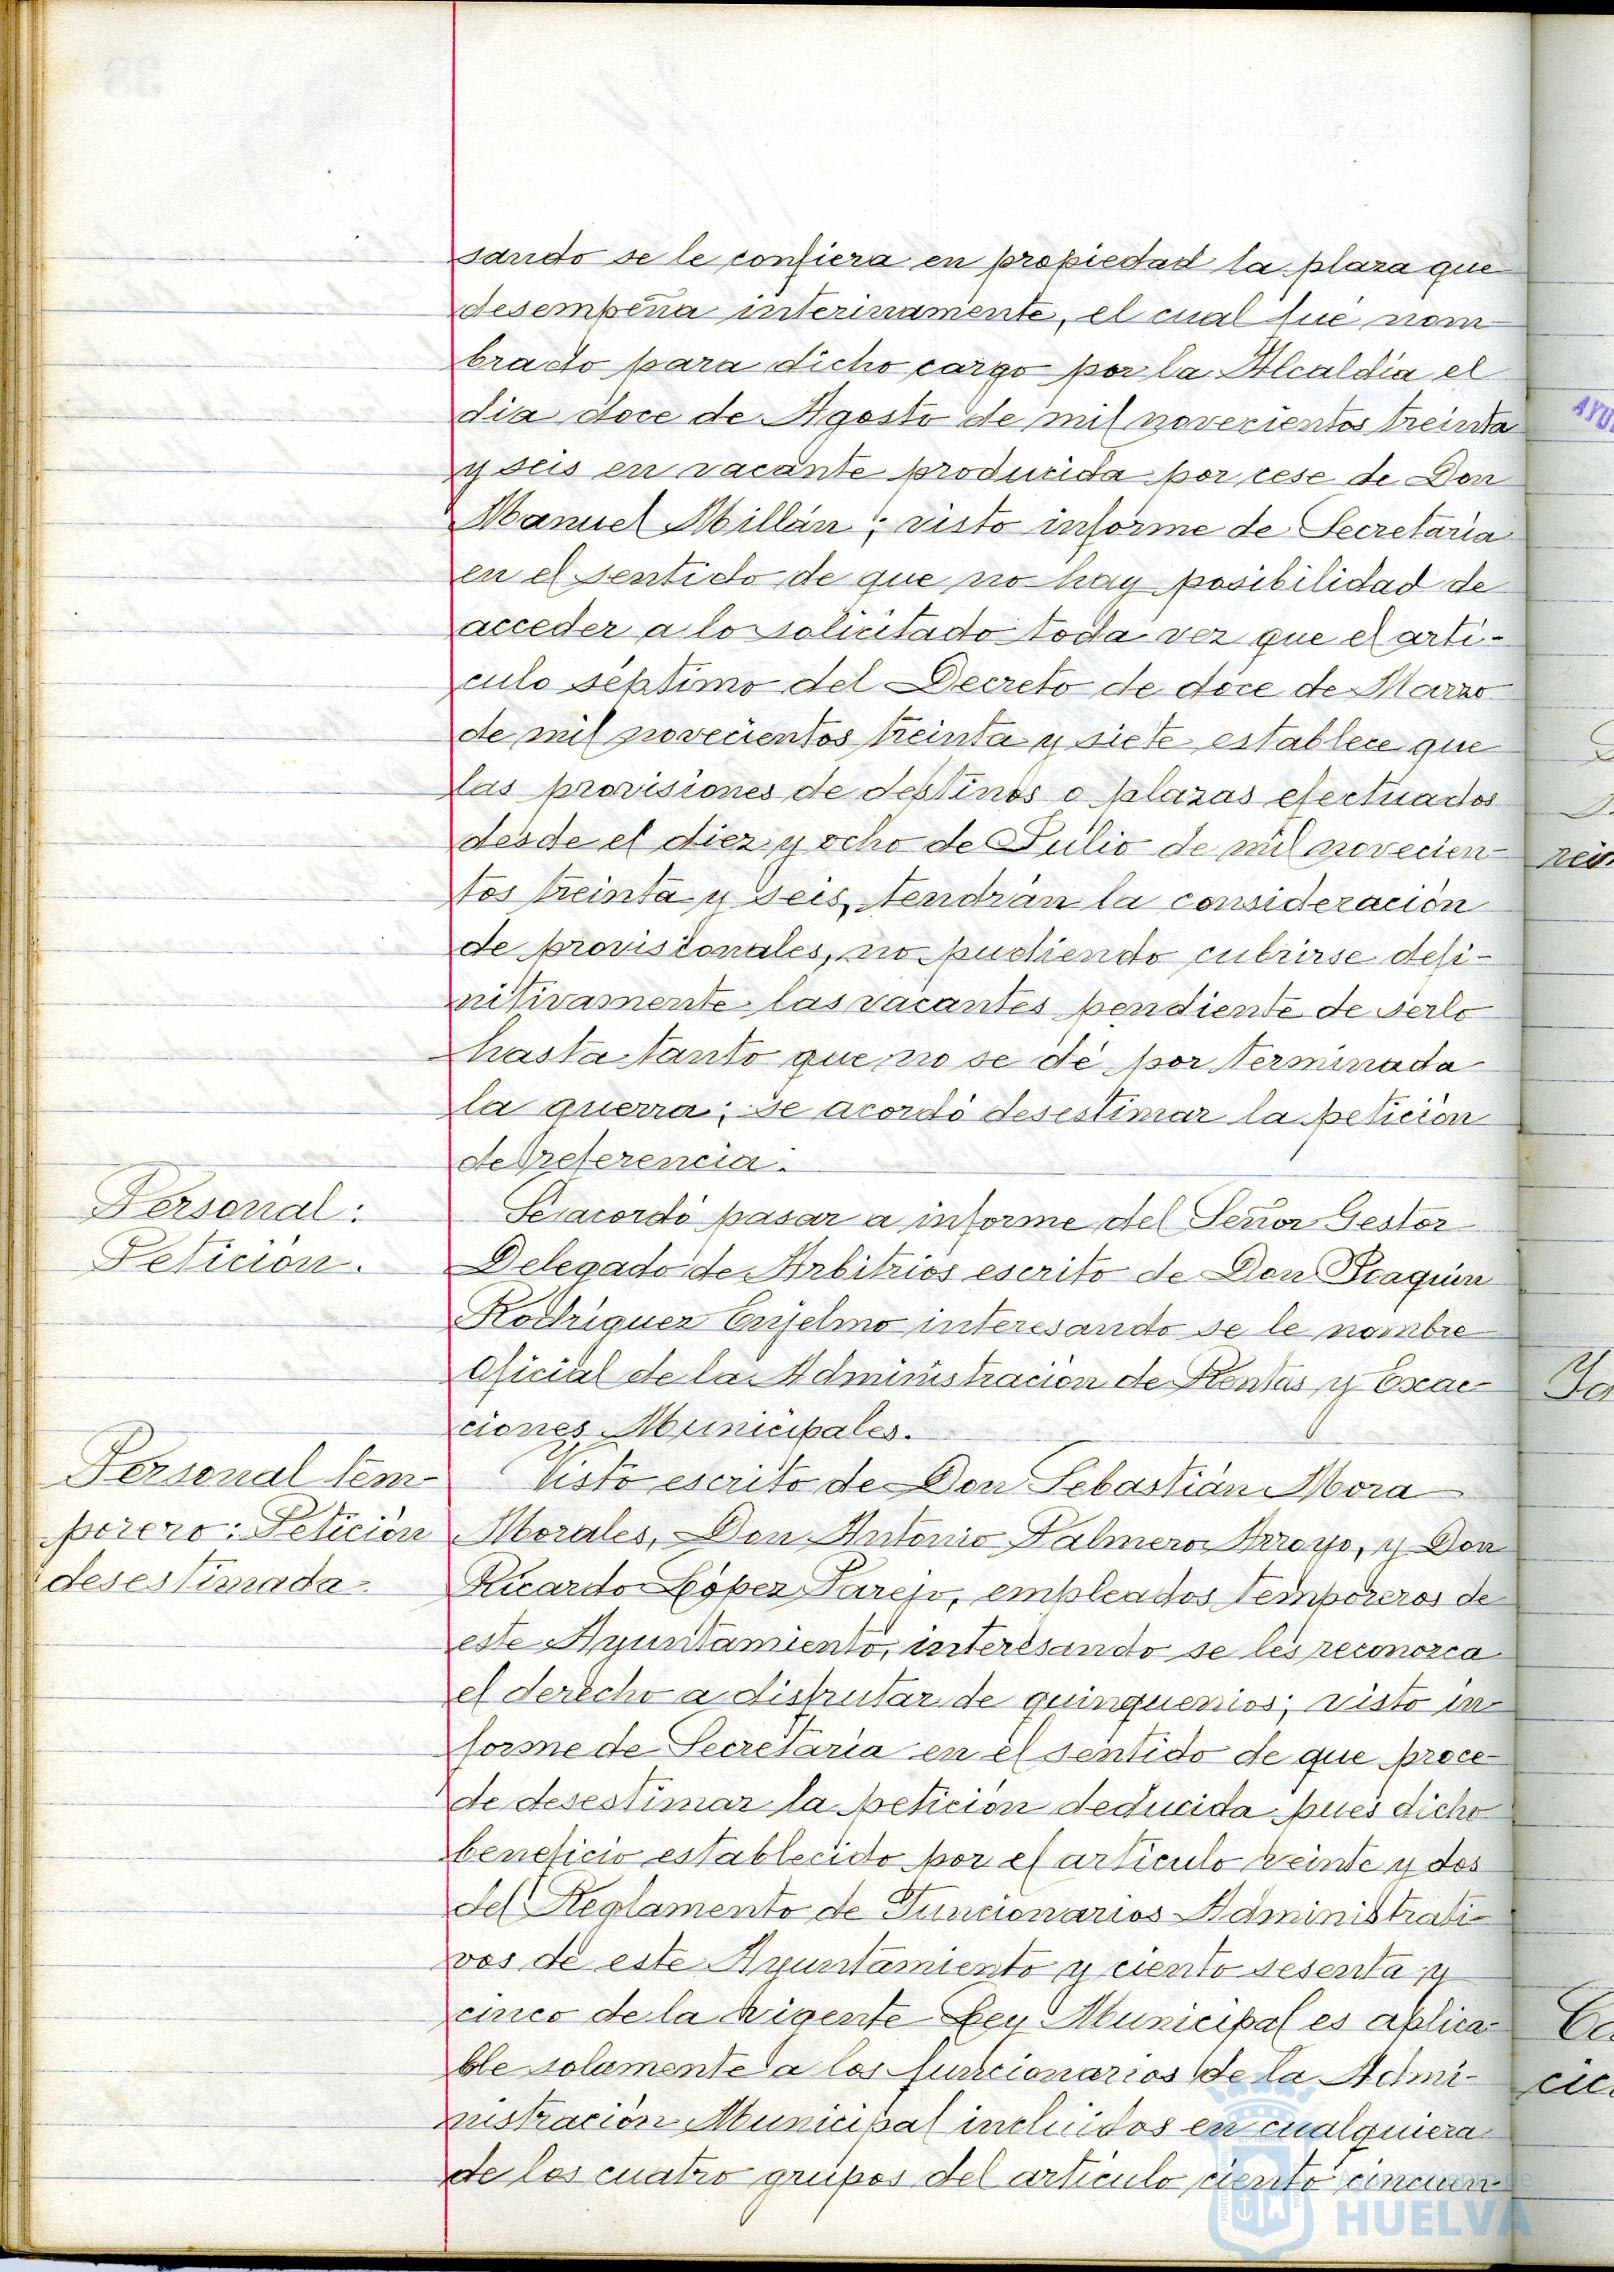 sando se le confiera en propiedad la plaza que
desempeña interinamente, el cual fué nom
brado para dicho cargo por la Alcaldía el
dia doce de Agosto de mil novecientos treinta
y seis en vacante producida por cese de Don
Manuel Millán; visto informe de Secretaría
en el sentido de que no hay posibilidad de
acceder a lo solicitado toda vez que el arti-
culo séptimo del Decreto de doce de Marzo
de mil novecientos treinta y siete establece que
las provisiones de destinos o plazas efectuados
desde el diez y ocho de Julio de mil novecien
tos treinta y seis, tendrán la consideración
de provisionales, no pudiendo cubrirse defi-
nitivamente las vacantes pendiente de serlo
hasta tanto que no se dé por terminada
la guerra; se acordó desestimar la petición
de referencia.
Personal:
Petición.
Se acordó pasar a informe del Señor Gestor
Delegado de Arbitrios escrito de Don Joaquín
Rodríguez Enjelmo interesando se le nombre
Oficial de la Administración de Rentas y Exac-
ciones Municipales.
Personal tem-
porero: Petición
desestimada.
Visto escrito de Don Sebastián Mora
Morales, Don Antonio Palmero Arroyo, y Don
Ricardo López Parejo, empleados temporeros de
este Ayuntamiento, interesando se les reconozca
el derecho a disfrutar de quinquenios; visto in-
forme de Secretaría en el sentido de que proce-
de desestimar la petición deducida pues dicho
beneficio establecido por el artículo veinte y dos
del Reglamento de Funcionarios Administrati-
vos de este Ayuntamiento y ciento sesenta y
cinco de la vigente Ley Municipal es aplica-
ble solamente a los funcionarios de la Admi-
nistración Municipal incluídos en cualquiera
de los cuatro grupos del artículo ciento cincuen-
HUELVA